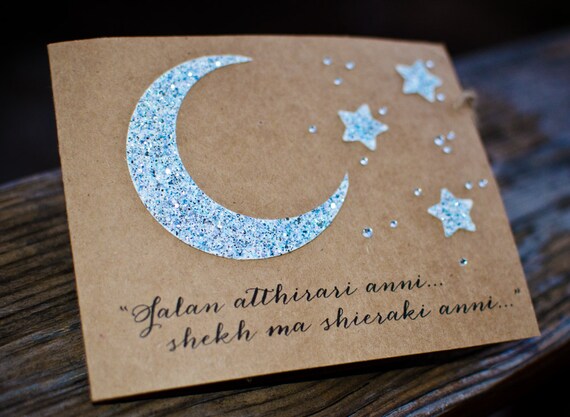 "Jalan atthirari anni...
shekh ma shieraki anni..."